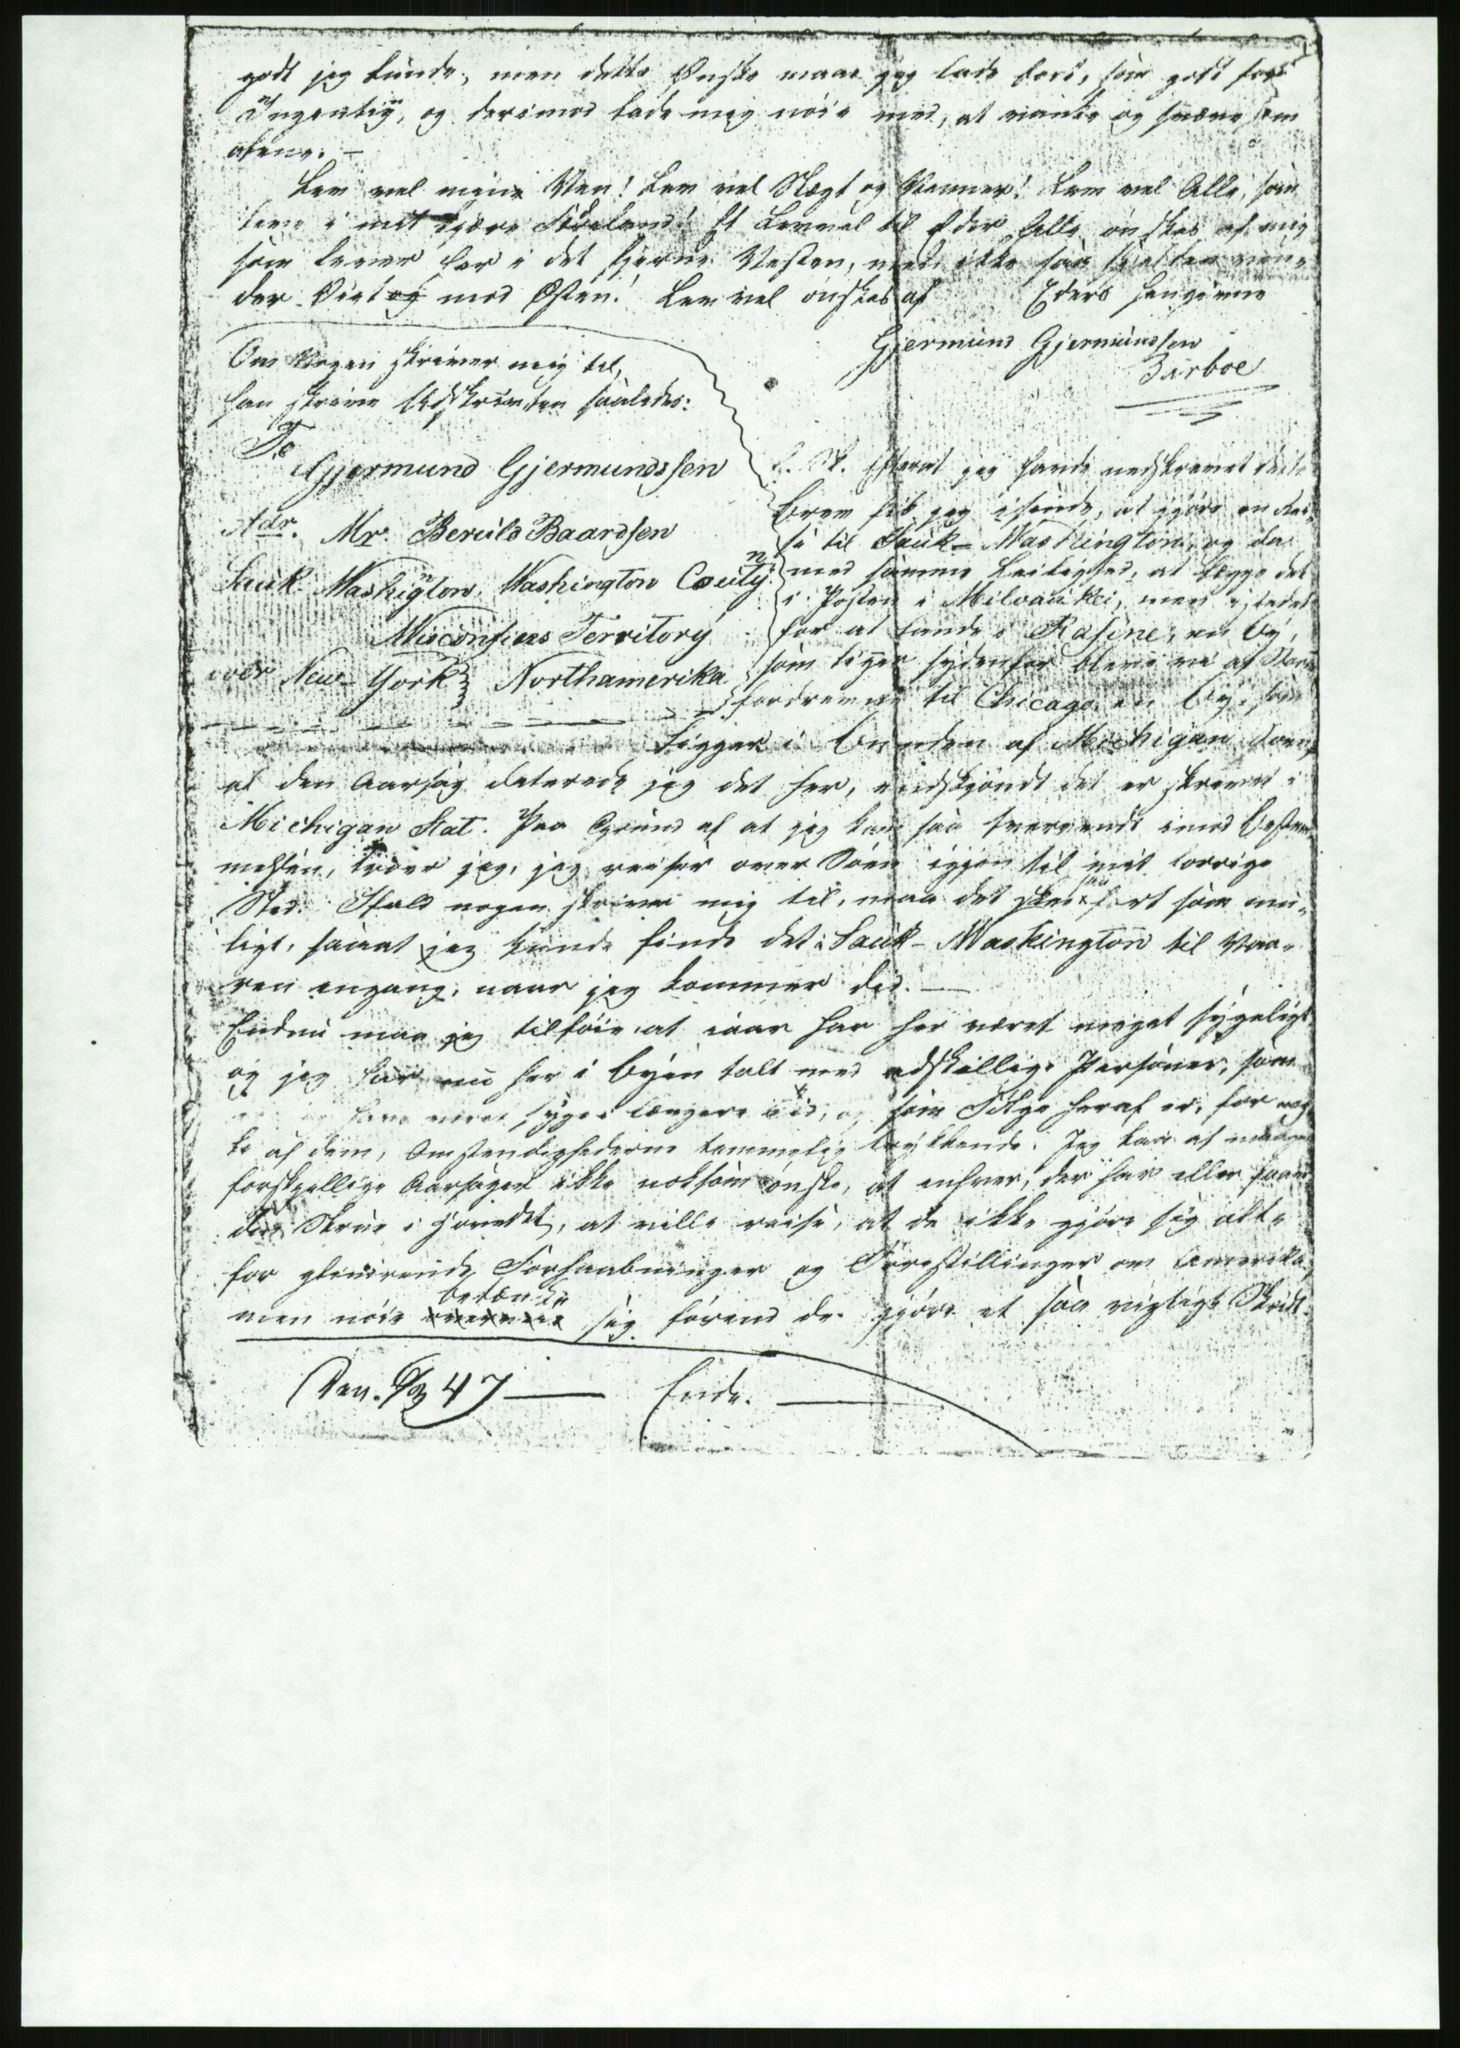 godt jeg kunde, men dette Ønske maae jeg lade fare, som godt for
Ingenting, og derimod lade mig nöie med, at vanke og sværme som
alene. —
Lev vel mine Ven! Lev vel Slægt og Venner! Lev vel Alle, som
leve i mit kjære Födeland! Et Levvel til Eder alle önskes af mig
som lever her i det fjerne Vesten, men ikke saa sjelden ven-
der Öiet mod Östen! Lev vel önskes af Eders hengivne
Gjermund Gjermundssen
Barboe
Om Nogen skriver mig til,
han skrive Udskriften saaledes:
To
Gjermund Gjermundssen
Adr. Mr. Beruld Baardsen
Sauk-Washington, Washington County
Wisconsins Territory
over New-York Northamerika
P. S. Efterat jeg havde nedskrevet dette
Brev fik jeg isinde, at gjöre en Rei-
se til Sauk-Washington, og da
med samme Leilighed, at lægge det
i Posten i Milvaukei, men istedet
for at lande i Rasine, en By,
som ligger sydenfor bleve vi af Storm
fordrevne til Chicago en By, som
Ligger i Bunden af Michigan Söen,
af den Aarsag daterede jeg det her, endskjöndt det er skrevet i
Michigan Stat. Paa Grund af at jeg kom saa tvervendt imod Bestem-
melsen, troer jeg, jeg reiser over Söen igjen til mit forrige
Sted. Ifald nogen skriver mig til, maa det skee saa fort som mu-
ligt, saaat jeg kunde finde det i Sauk-Washington til Vaa-
ren engang, naar jeg kommer did. —
Endnu maa jeg tilföie at iaar har her været meget sygeligt
og jeg har nu her i Byen talt med adskillige Personer, som
have været syge i længere Tid, og som Fölge heraf er, for nog-
le af dem, Omstændighederne temmelig trykkende. Jeg kan af mange
forskjellige Aarsager ikke noksom önske, at enhver, der har eller faaer
den Skrue i Hovedet, at ville reise, at de ikke gjöre sig alt-
for glimrende Forhaabninger og Forestillinger om Amerika,
men nöie betænke sig förend de gjöre et saa vigtigt Skridt.
Den 6/3 47 — Ende. —